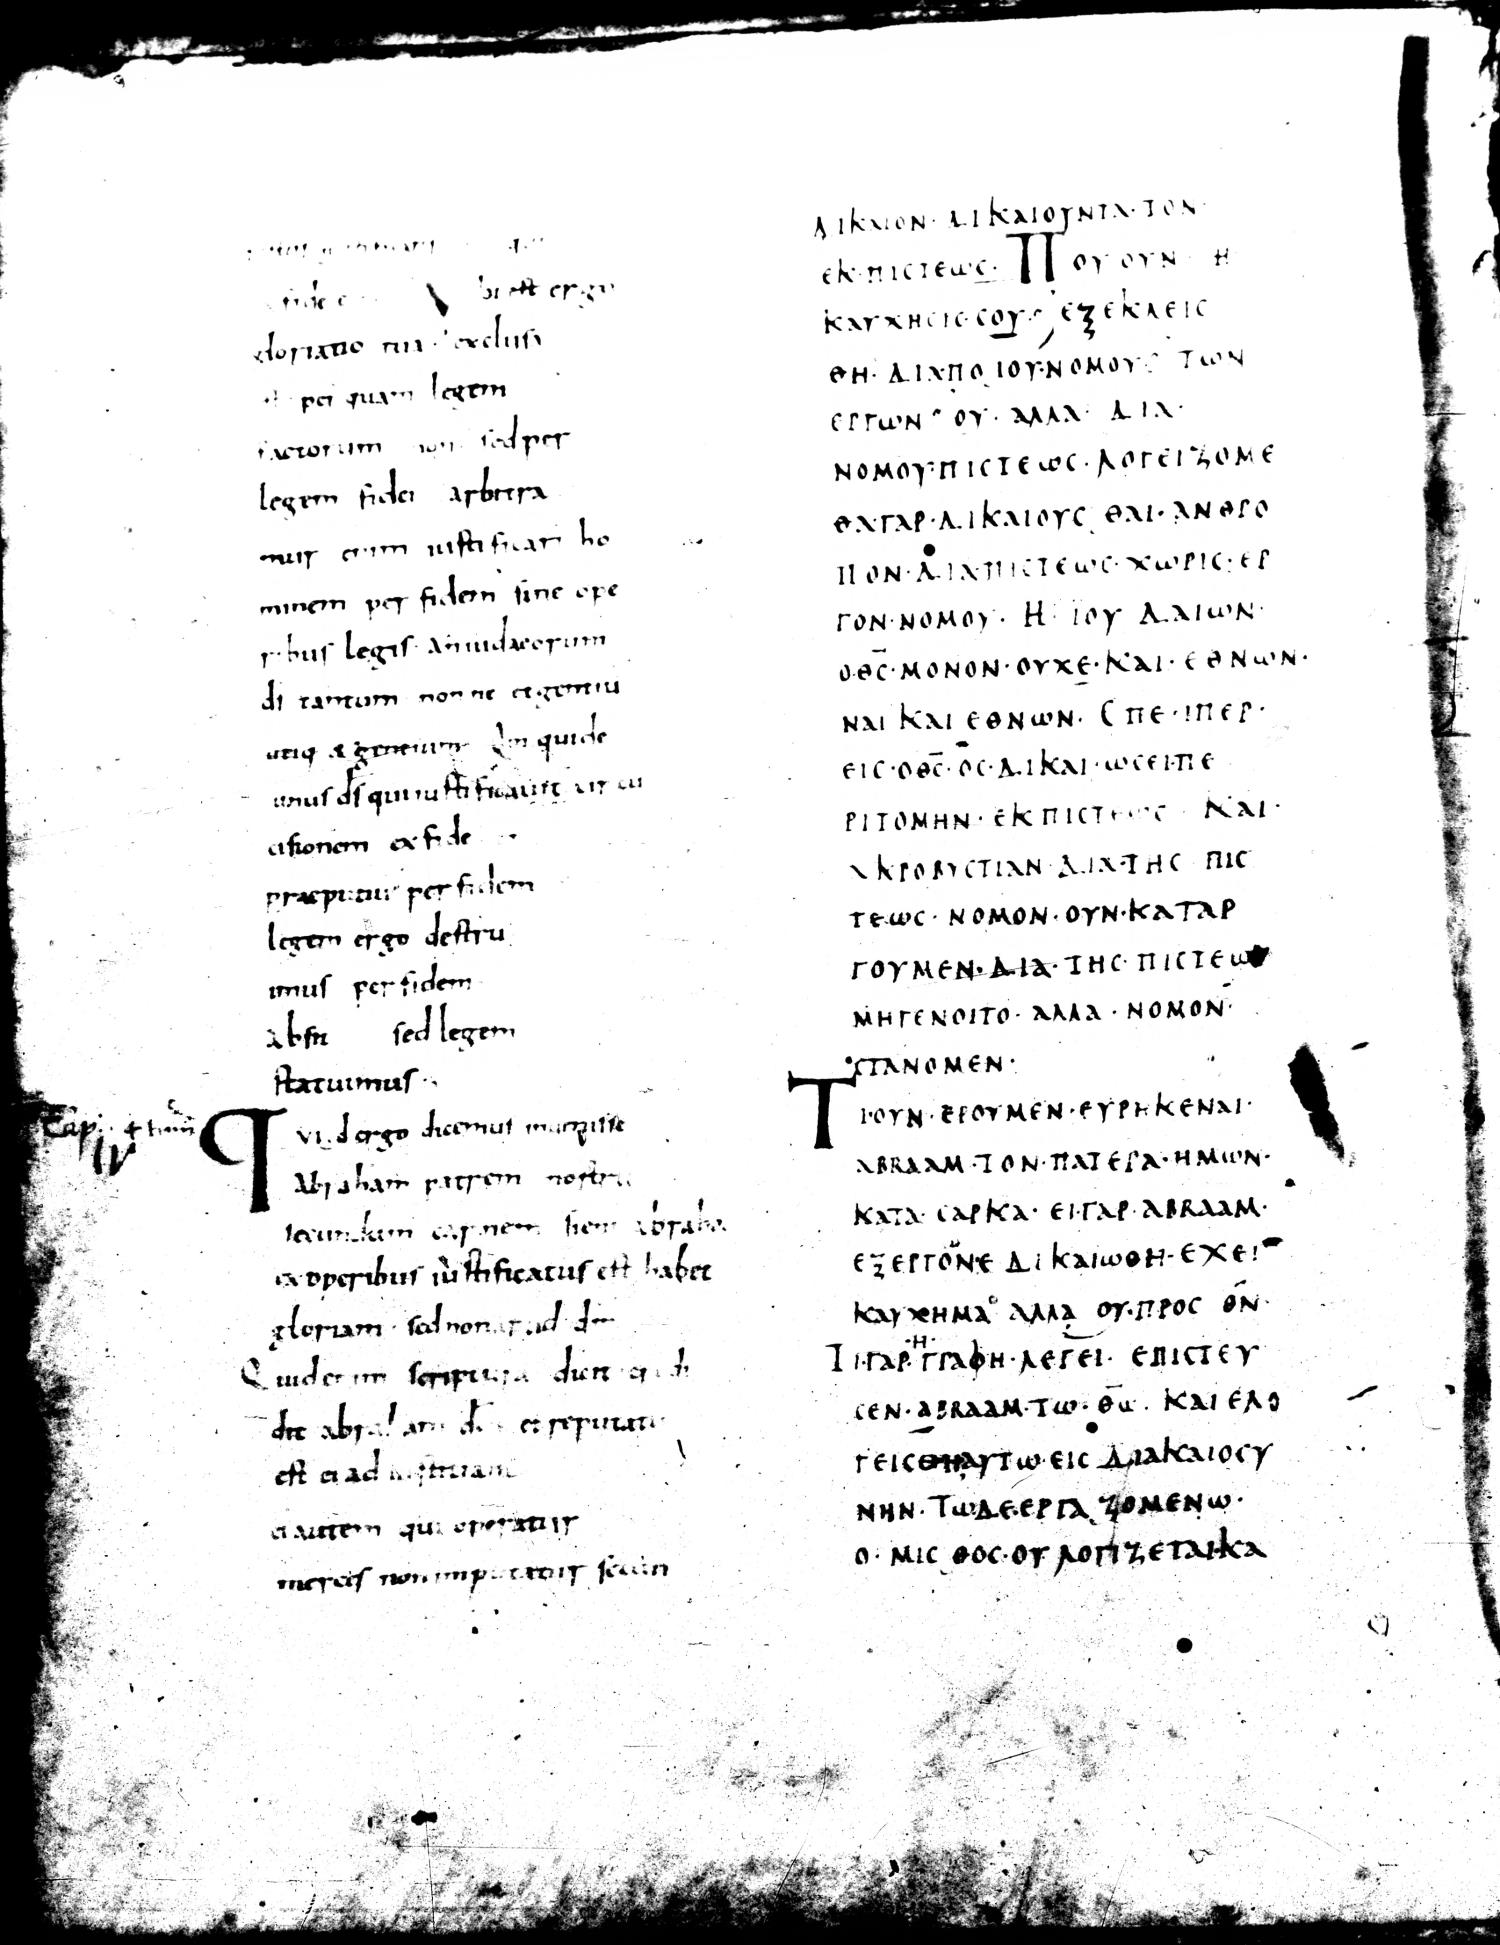 fide bi est ergo
gloriatio tua exclusa
per quam legem
factorum non sed per
legem fidei arbitra
mur enim iustificari ho
minem per fidem sine ope
ribus legis an iudaeorum
di tantum nonne et gentiu
utiq et gentium Qm quide
unus ds qui iustificavit circu
cisionem ex fide
praeputium per fidem
legem ergo destru
imus per fidem
absit sed legem
statuimus
Capi
IV
Qvid ergo dicemus
Abraham patrem nostru
secundum carnem abraha
ex operibus iustificatus est habet
gloriam sed non ad dm
Quid enim scriptura dicit
dit abraham et reputatu
est ei ad iustitiam
ei autem qui operatur
merces non imputatur secun
ΔΙΚΑΙΟΝ· ΔΙΚΑΙΟΥΝΤΑ· ΤΟΝ·
ΕΚ·ΠΙCΤΕΩC· ΠΟΥ ΟΥΝ Η
ΚΑΥΧΗCΙC·CΟΥ ΕΞΕΚΛΕΙC
ΘΗ· ΔΙΑ·ΠΟΙΟΥ·ΝΟΜΟΥ ΤΩΝ
ΕΡΓΩΝ ΟΥ· ΑΛΛΑ· ΔΙΑ·
ΝΟΜΟΥ·ΠΙCΤΕΩC· ΛΟΓΕΙΖΟΜΕ
ΘΑ·ΓΑΡ·ΔΙΚΑΙΟΥCΘΑΙ· ΑΝΘΡΟ
ΠΟΝ·ΔΙΑ·ΠΙCΤΕΩC· ΧΩΡΙC· ΕΡ
ΓΟΝ·ΝΟΜΟΥ· Η· ΪΟΥΔΑΙΩΝ·
Ο·ΘC·ΜΟΝΟΝ·ΟΥΧΕ·ΚΑΙ·ΕΘΝΩΝ·
ΝΑΙ ΚΑΙ ΕΘΝΩΝ· ΕΠΕ·ΙΠΕΡ·
ΕΙC·ΟΘC·ΟC·ΔΙΚΑΙ·ΩCΕΙ·ΠΕ
ΡΙΤΟΜΗΝ· ΕΚ ΠΙCΤΕΩC ΚΑΙ·
ΑΚΡΟΒΥCΤΙΑΝ·ΔΙΑ·ΤΗC ΠΙC
ΤΕΩC· ΝΟΜΟΝ·ΟΥΝ·ΚΑΤΑΡ
ΓΟΥΜΕΝ·ΔΙΑ·ΤΗC·ΠΙCΤΕΩ
ΜΗΓΕΝΟΙΤΟ· ΑΛΛΑ·ΝΟΜΟΝ·
CΤΑΝΟΜΕΝ·
ΤΙ·ΟΥΝ·ΕΡΟΥΜΕΝ·ΕΥΡΗΚΕΝΑΙ·
ΑΒRΑΑΜ·ΤΟΝ·ΠΑΤΕΡΑ·ΗΜΩΝ·
ΚΑΤΑ· CΑΡΚΑ· ΕΙ·ΓΑΡ·ΑΒRΑΑΜ·
ΕΞΕΡΓΟΝΕ ΔΙΚΑΙΩΘΗ·ΕΧΕΙ
ΚΑΥΧΗΜΑ ΑΛΛΑ ΟΥ·ΠΡΟC ΘΝ·
ΤΙ·ΓΑΡ·Η·ΓΡΑΦΗ·ΛΕΓΕΙ· ΕΠΙCΤΕΥ
CΕΝ·ΑΒRΑΑΜ·ΤΩ·ΘΩ· ΚΑΙ ΕΛΟ
ΓΕΙCΘΗΑΥΤΩ·ΕΙC ΔΙΑΚΑΙΟCΥ
ΝΗΝ· ΤΩΔΕ·ΕΡΓΑΖΟΜΕΝΩ·
Ο· ΜΙCΘΟC·ΟΥ ΛΟΓΙΖΕΤΑΙΚΑ